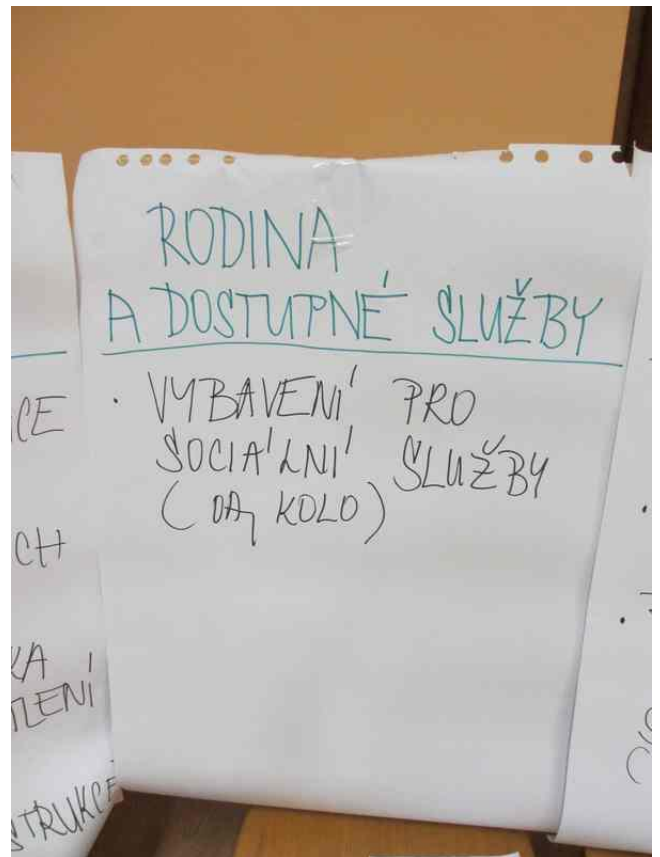 RODINA
A DOSTUPNÉ SLUŽBY
· VYBAVENÍ PRO
SOCIÁLNÍ SLUŽBY
(OA, KOLO)
CE
CH
KA
TRUKCE